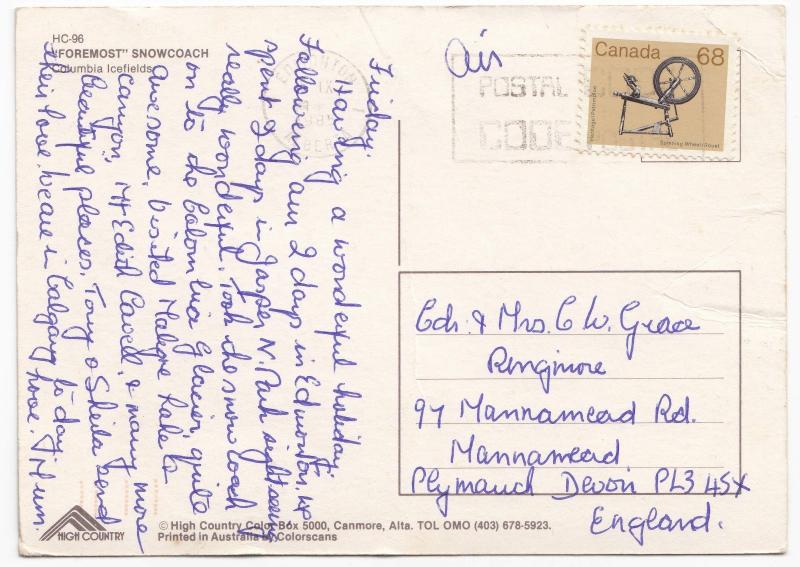 HC-96
"FOREMOST" SNOWCOACH
Columbia Icefields
Friday.
Having a wonderful holiday.
Following our 2 days in Edmonton, we
spent 2 days in Jasper N. Park sightseeing
really wonderful. Took the snow coach
on to the Colombia Glacier, quite
awesome, visited Maligne Lake &
canyon, Mt Edith Cavell, & many more
beautiful places. Tony & Sheila send
their love. We are in Calgary to-day
love.
Air
EDMONTON
POSTAL
CODE
Canada 68
Heritage Patrimoine
Spinning Wheel/Rouet
Cdr. & Mrs. C W. Grace
Ringmore
97 Mannamead Rd.
Mannamead
Plymouth Devon PL3 4SX
England.
HIGH COUNTRY
© High Country Color Box 5000, Canmore, Alta. TOL OMO (403) 678-5923.
Printed in Australia by Colorscans